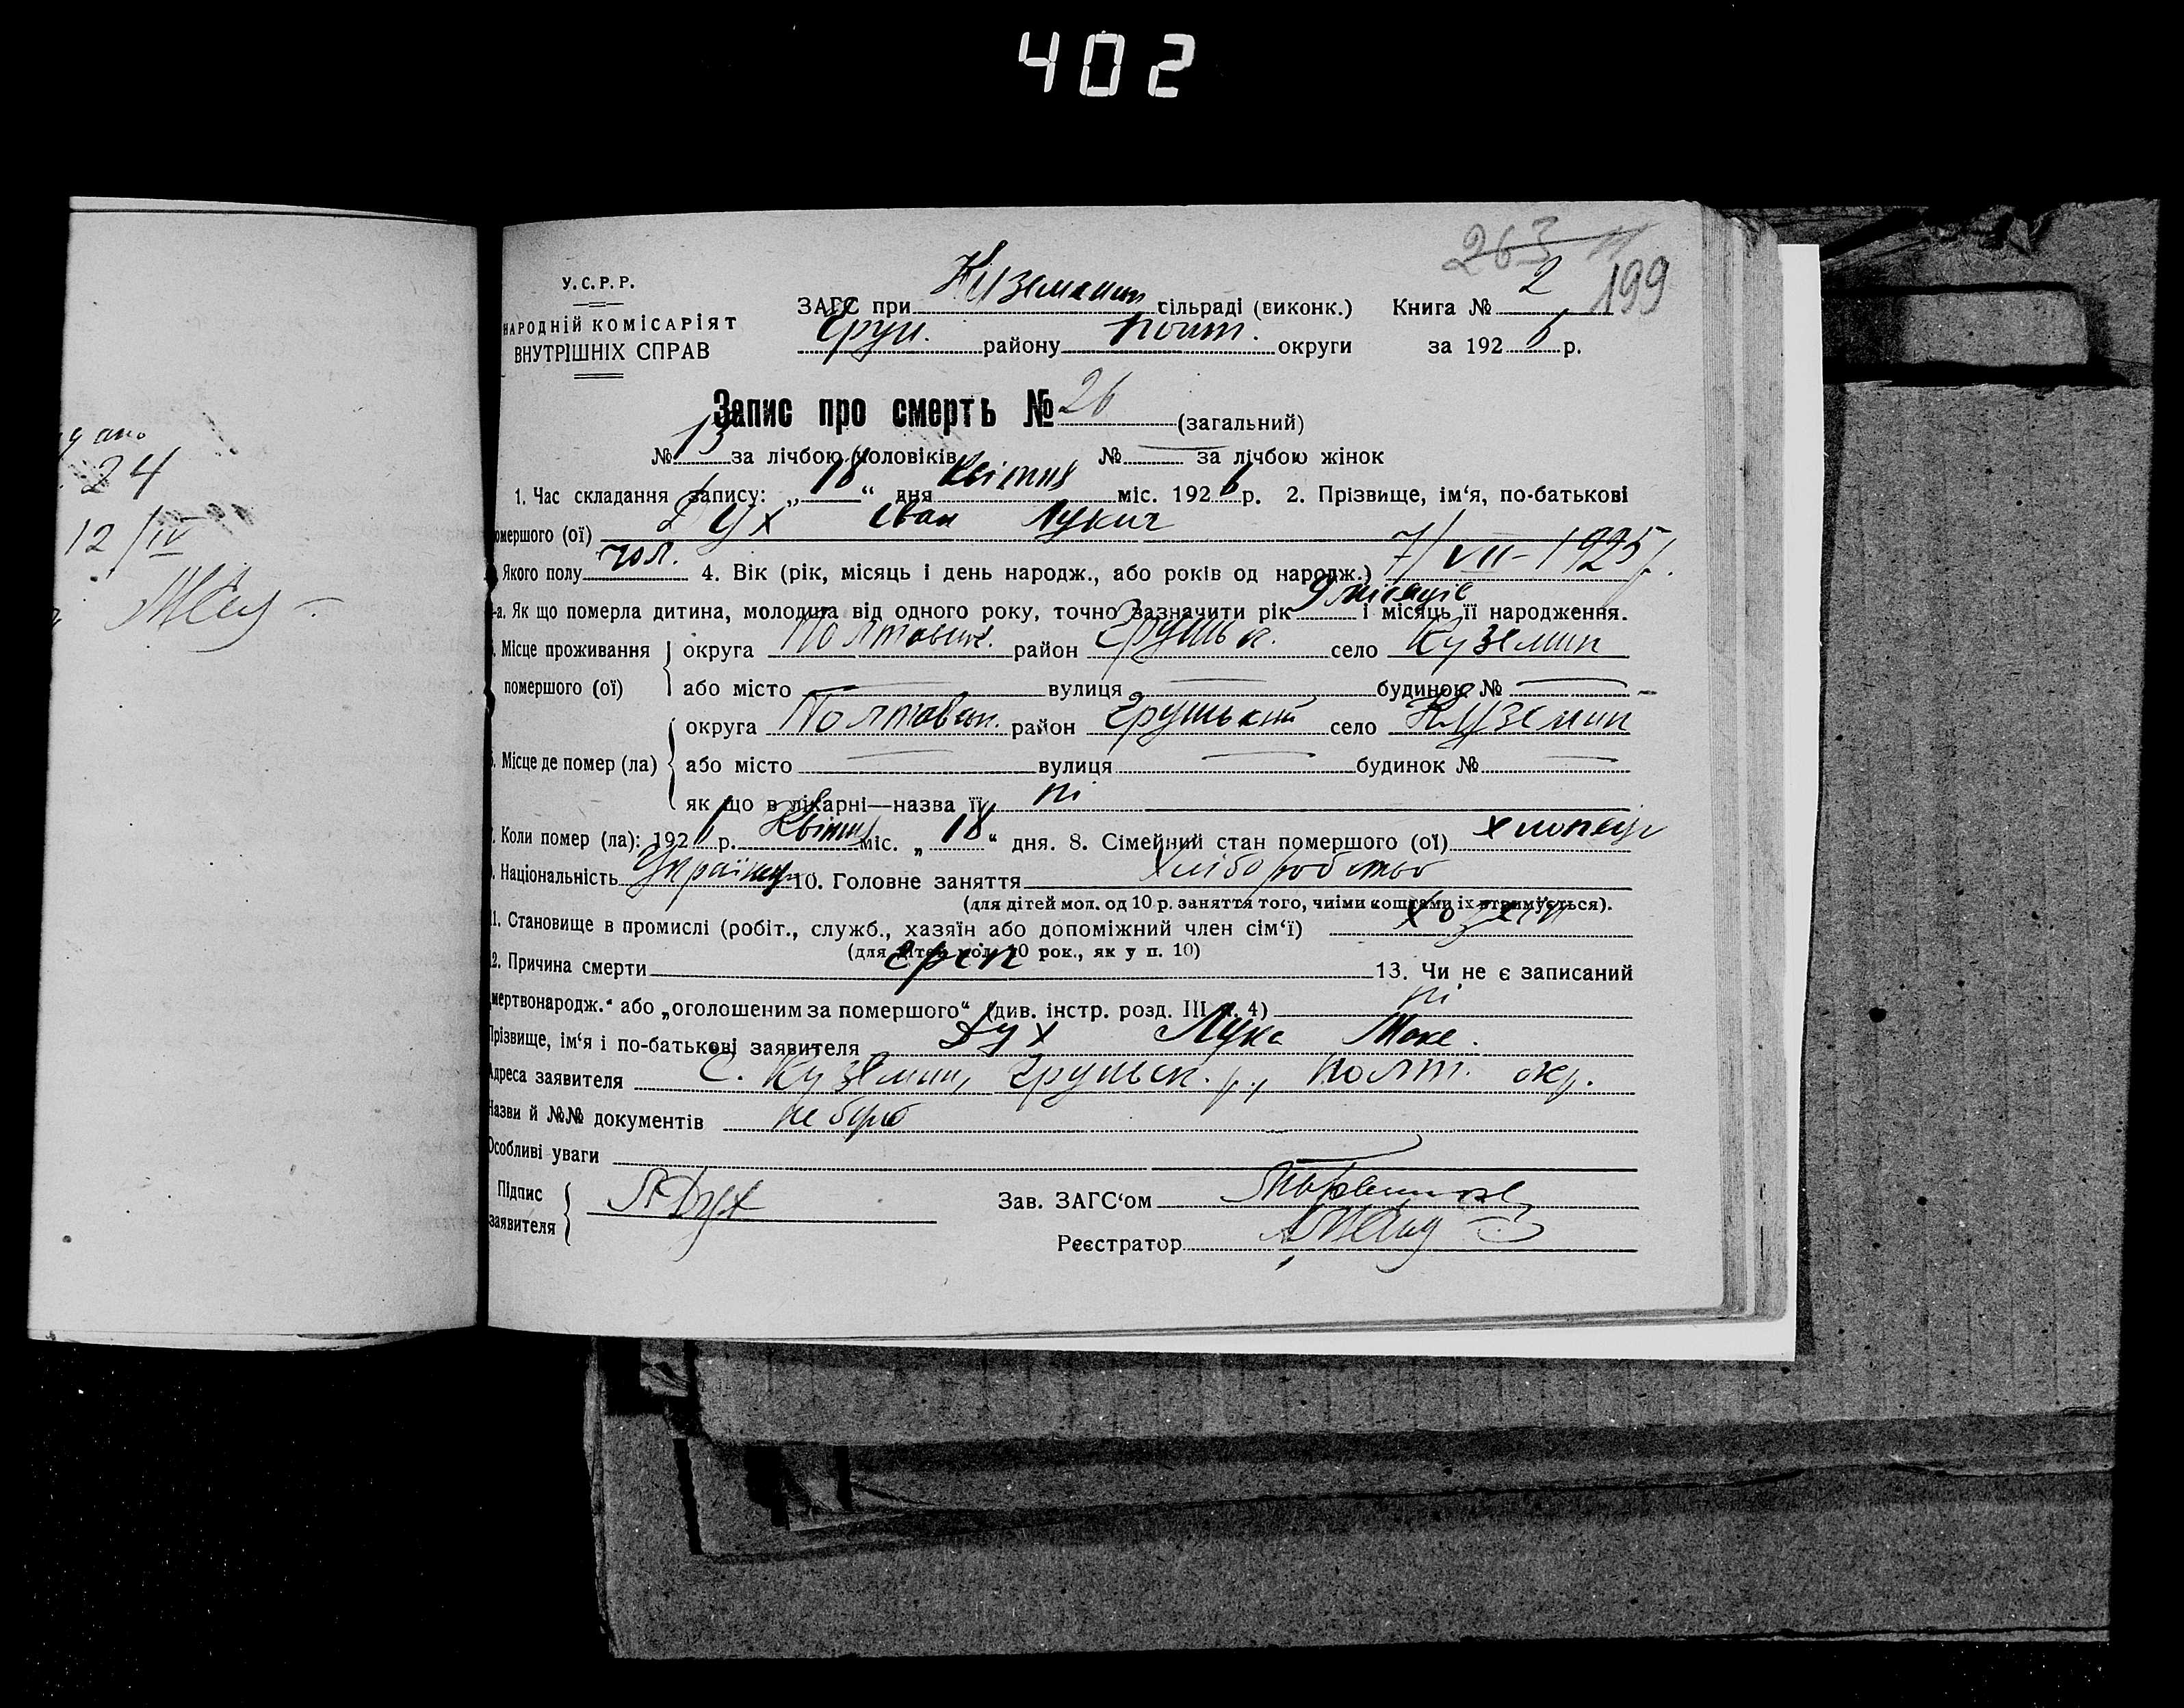 402
263
199
У.С.Р.Р.
НАРОДНІЙ КОМІСАРІЯТ
ВНУТРІШНІХ СПРАВ
ЗАГС при Куземин сільраді (виконк.) Книга № 2
Грун. району Полт. округи за 1926 р.
Запис про смерть № 26 (загальний)
№ 13 за лічбою чоловіків № — за лічбою жінок
1. Час складання запису: „18“ дня Квітня міс. 1926 р. 2. Прізвище, ім‘я, по-батькові
омершого (ої) Дух Іван Лукич
Якого полу чол. 4. Вік (рік, місяць і день народж., або років од народж.) 7/VII-1925 р.
-а. Як що померла дитина, молодша від одного року, точно зазначити рік 9 місяців і місяць її народження.
Місце проживання помершого (ої) округа Полтавськ. район Грунськ. село Куземин
або місто — вулиця — будинок № —
Місце де помер (ла) округа Полтавськ. район Грунський село Куземин
або місто — вулиця — будинок № —
як що в лікарні—назва її ні
Коли помер (ла): 1926 р. Квітня міс. „18“ дня. 8. Сімейний стан помершого (ої) хлопець
Національність Українец 10. Головне заняття Хліборобство
(для дітей мол. од 10 р. заняття того, чиїми коштами їх втримується).
11. Становище в промислі (робіт., служб., хазяїн або допоміжний член сім‘ї) хозяїн
(для дітей мол. 10 рок., як у п. 10)
12. Причина смерти грип 13. Чи не є записаний
мертвонародж.“ або „оголошеним за помершого“ (див. інстр. розд. III п. 4) ні
Прізвище, ім‘я і по-батькові заявителя Дух Лука
Адреса заявителя С. Куземин, Грунськ. р., Полт. окр.
Назви й №№ документів
Особливі уваги
Підпис заявителя Л Дух Зав. ЗАГС‘ом
Реєстратор
24
12/IV